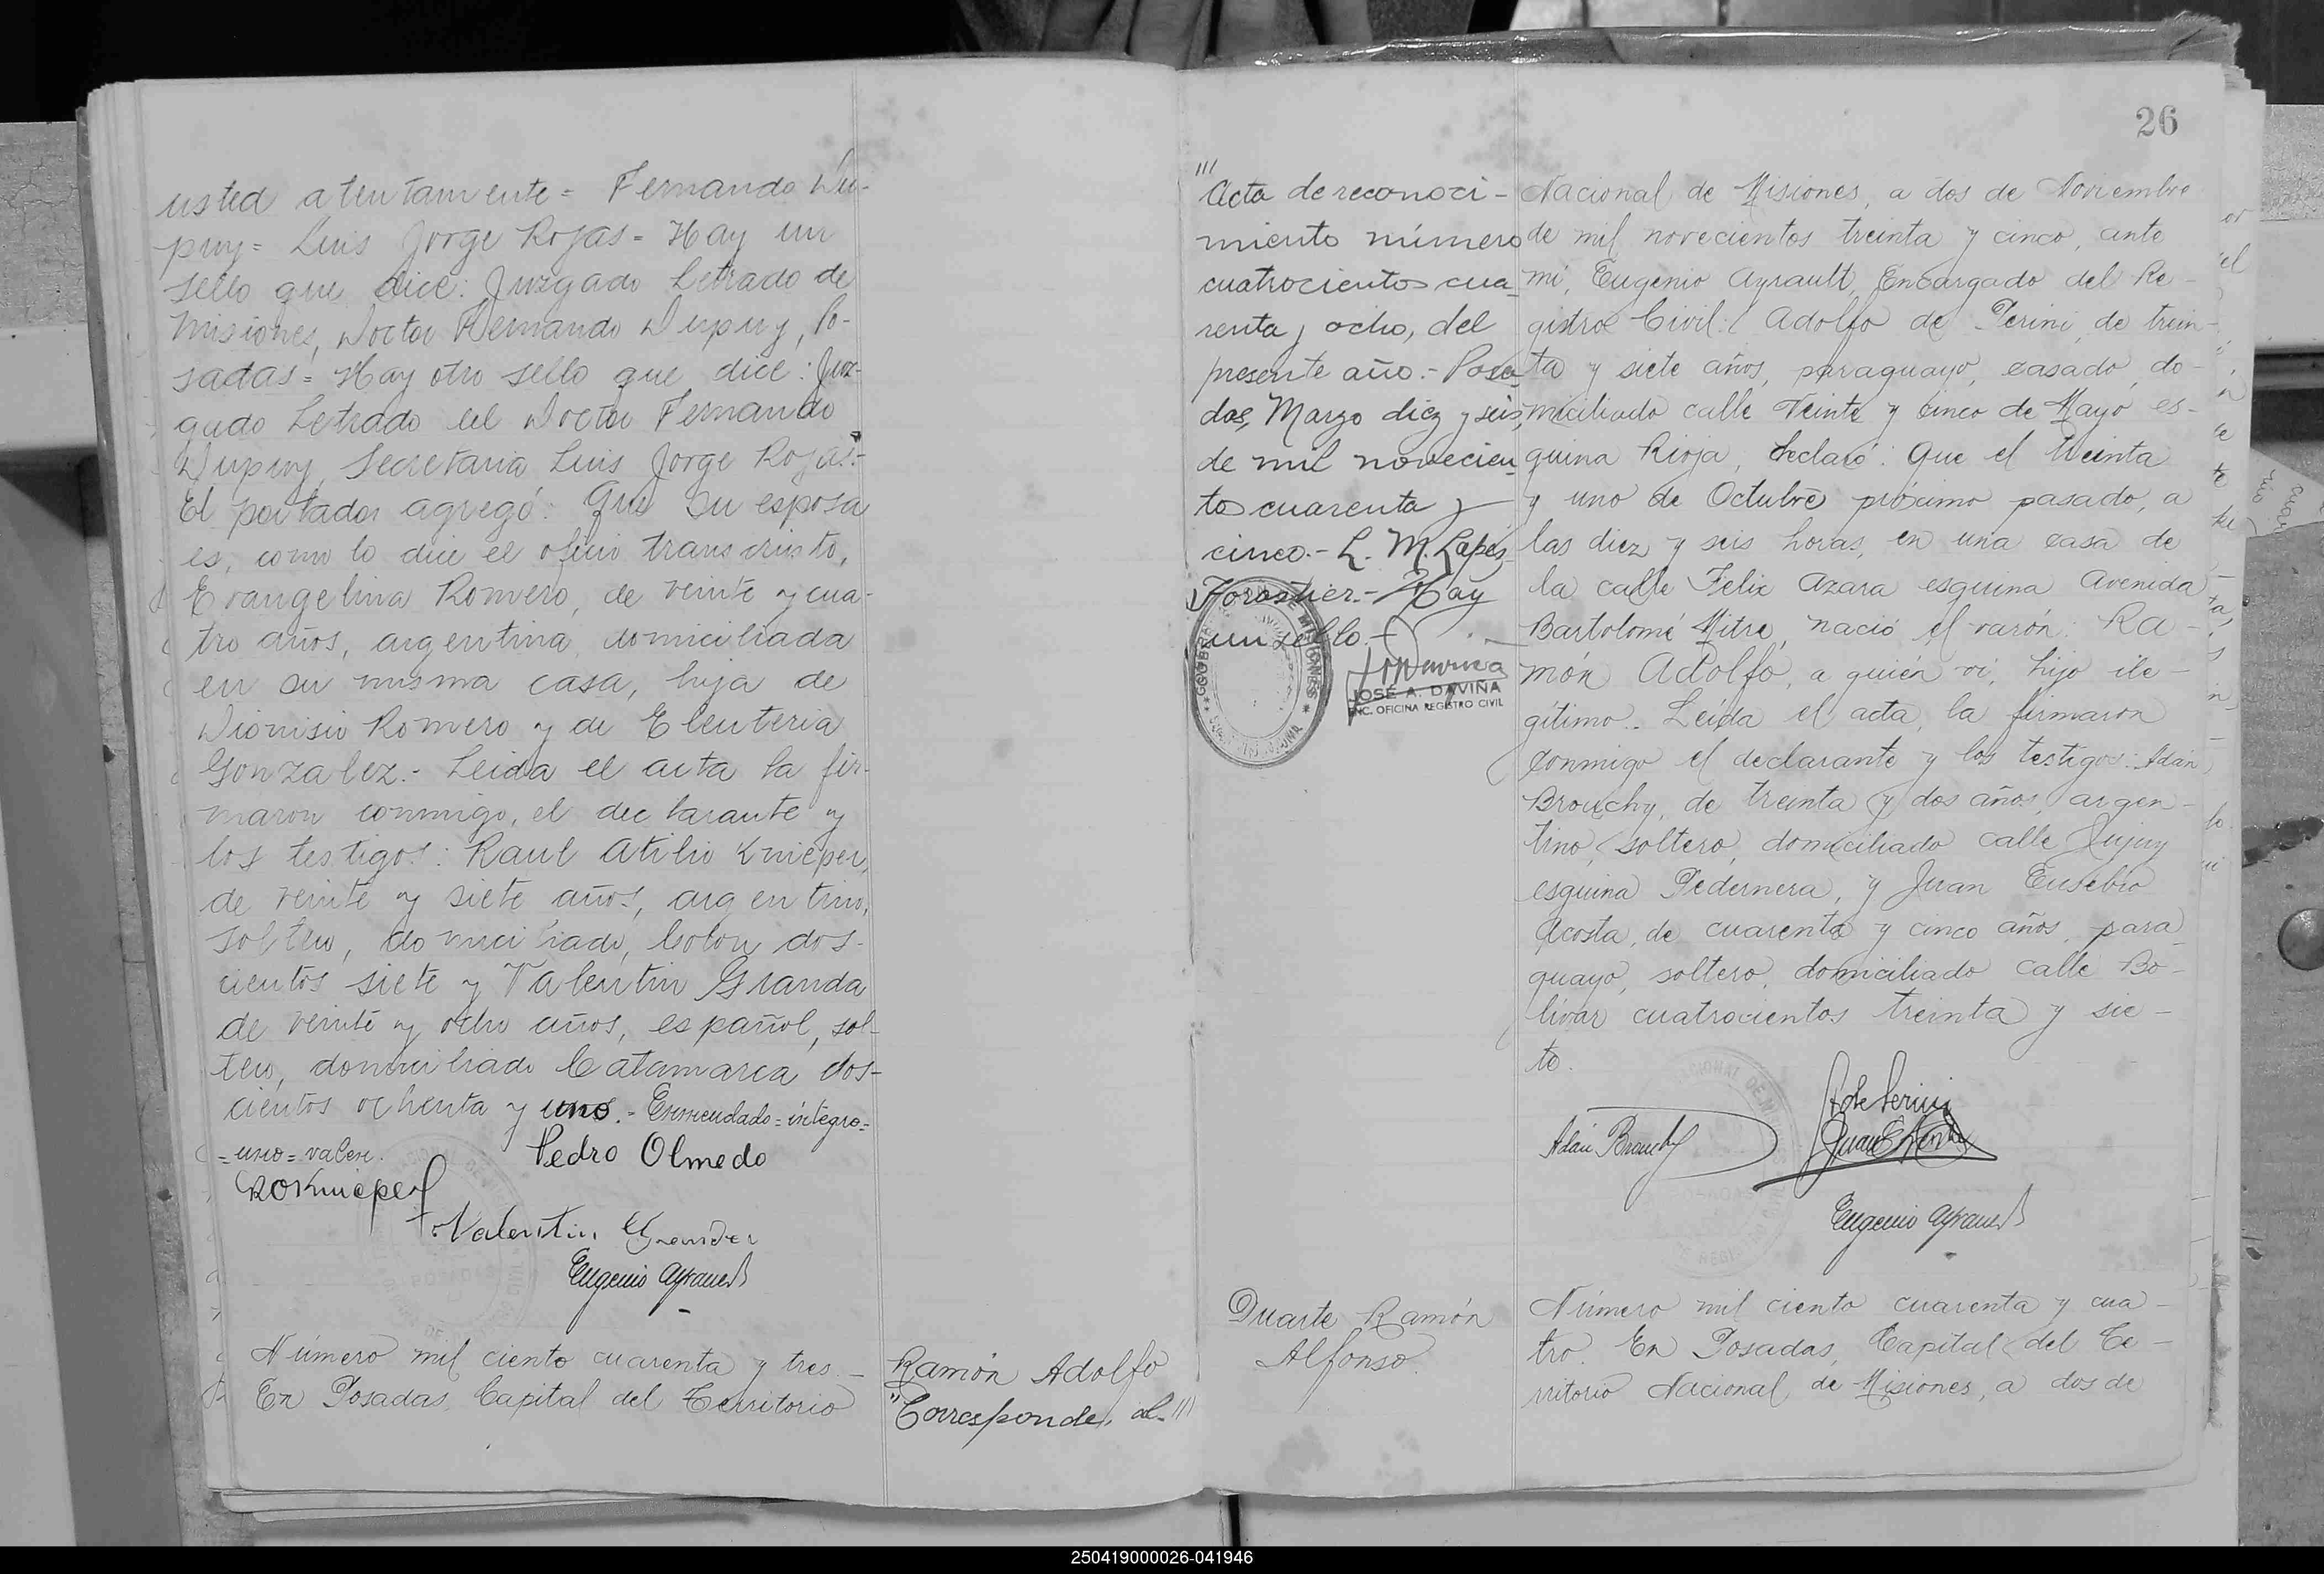 usted atentamente = Fernando Du-
puy = Luis Jorge Rojas = Hay un
sello que dice: Juzgado Letrado de
Misiones, Doctor Fernando Dupuy, Po-
sadas = Hay otro sello que dice: Juz-
gado Letrado del Doctor Fernando
Dupuy, Secretaria, Luis Jorge Rojas.-
El portador agregó: Que su esposa
es, como lo dice el oficio transcripto,
Evangelina Romero, de veinte y cua-
tro años, argentina, domiciliada
en su misma casa, hija de
Dionisio Romero y de Eleuteria
Gonzalez.- Leida el acta la fir-
maron conmigo, el declarante y
los testigos: Raul Atilio Knieper,
de veinte y siete años, argentino,
soltero, domiciliado, Colon dos-
cientos siete y Valentin Granda
de veinte y ocho años, español, sol-
tero, domiciliado Catamarca dos-
cientos ochenta y uno.- Enmendado = integro=
= uno = valen.
Pedro Olmedo
RaKnieper
Valentin Granda
Eugenio Ayrault
Número mil ciento cuarenta y tres.-
En Posadas, Capital del Territorio
Ramón Adolfo
"Corresponde, al- ///
26
///
Acta de reconoci-
miento número
cuatrocientos cua-
renta y ocho, del
presente año.- Posa-
das, Marzo diez y seis,
de mil novecien-
tos cuarenta y
cinco.- L. M. Lapés
Forastier.- Hay
un sello.-
JOSÉ A. DAVIÑA
ENC. OFICINA REGISTRO CIVIL
Nacional de Misiones, a dos de Noviembre
de mil novecientos treinta y cinco, ante
mi, Eugenio Ayrault, Encargado del Re-
gistro Civil: Adolfo de Perini, de trein-
ta y siete años, paraguayo, casado, do-
miciliado calle Veinte y cinco de Mayo es-
quina Rioja, declaró: Que el treinta
y uno de Octubre próximo pasado, a
las diez y seis horas, en una casa de
la calle Felix Azara esquina Avenida
Bartolomé Mitre, nació el varón: Ra-
món Adolfo, a quién vi, hijo ile-
gitimo. Leída el acta, la firmaron
conmigo el declarante y los testigos: Adán
Brouchy, de treinta y dos años, argen-
tino, soltero, domiciliado calle Jujuy
esquina Pedernera, y Juan Eusebio
Acosta, de cuarenta y cinco años, para-
guayo, soltero, domiciliado calle Bo-
livar cuatrocientos treinta y sie-
te.
A de Perini
Adán Brouchy
Juan E Acosta
Eugenio Ayrault
Duarte Ramón
Alfonso.
Número mil ciento cuarenta y cua-
tro. En Posadas, Capital del Te-
rritorio Nacional de Misiones, a dos de
250419000026-041946